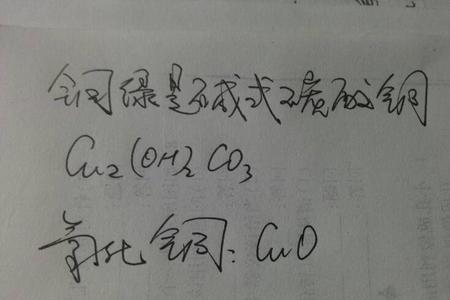 铜绿是碱式碳酸铜
Cu₂(OH)₂CO₃
氧化铜:CuO